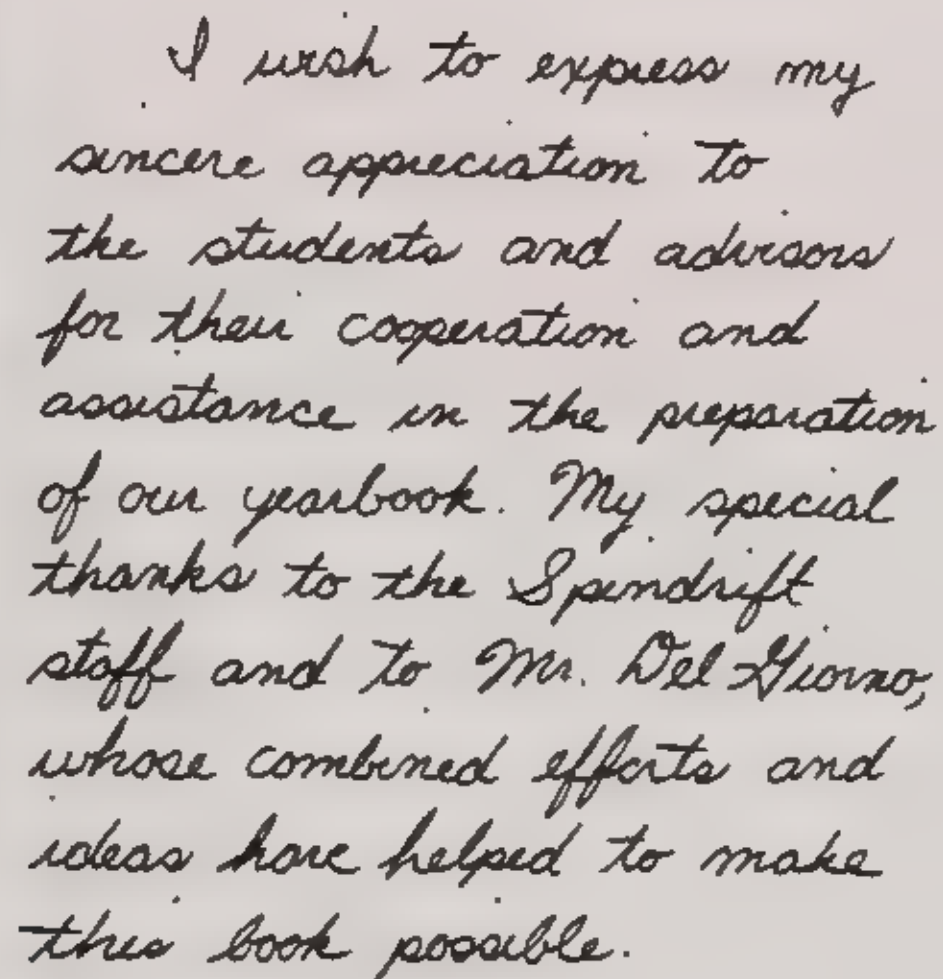 I wish to express my
sincere appreciation to
the students and advisors
for their cooperation and
assistance in the preparation
of our yearbook. My special
thanks to the Spindrift
staff and to Mr. Del Giorno,
whose combined efforts and
ideas have helped to make
this book possible.